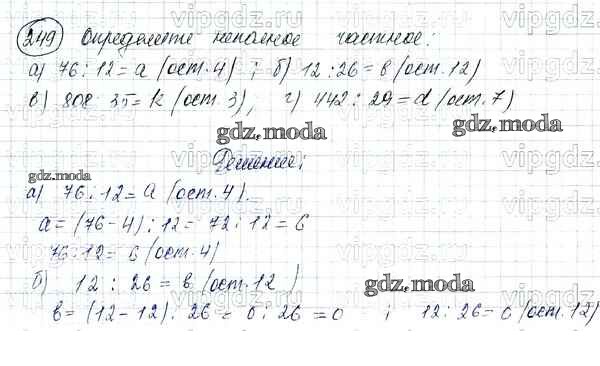 249 Определите неполное частное:
а) 76 : 12 = a (ост. 4) ; б) 12 : 26 = в (ост. 12)
в) 808 : 35 = k (ост. 3), г) 442 : 29 = d (ост. 7)
gdz.moda
Решение:
gdz.moda
а) 76 : 12 = a (ост. 4).
a = (76 - 4) : 12 = 72 : 12 = 6
76 : 12 = 6 (ост. 4)
б) 12 : 26 = в (ост. 12)
gdz.moda
в = (12 - 12) : 26 = 0 : 26 = 0 ; 12 : 26 = 0 (ост. 12)